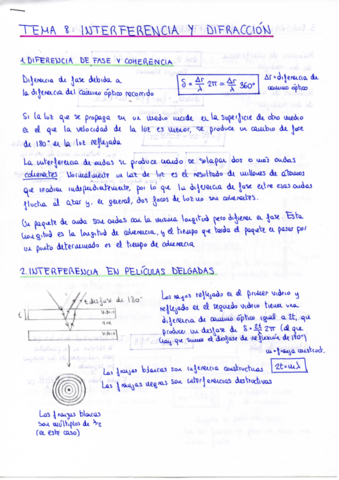 TEMA 8: INTERFERENCIA Y DIFRACCIÓN
1. DIFERENCIA DE FASE Y COHERENCIA
Diferencia de fase debida a
la diferencia del camino óptico recorrido
δ = Δr/λ 2π = Δr/λ 360°
Δr = diferencia de
camino óptico
Si la luz que se propaga en un medio incide en la superficie de otro medio
en el que la velocidad de la luz es menor, se produce un cambio de fase
de 180° en la luz reflejada
La interferencia de ondas se produce cuando se solapan dos o más ondas
coherentes. Normalmente un haz de luz es el resultado de millones de átomos
que irradian independientemente, por lo que la diferencia de fase entre esas ondas
fluctúa al azar y, en general, dos focos de luz no son coherentes.
Un paquete de onda son ondas con la misma longitud pero difieren en fase. Esta
longitud es la longitud de coherencia, y el tiempo que tarda el paquete en pasar por
un punto determinado es el tiempo de coherencia.
2. INTERFERENCIA EN PELÍCULAS DELGADAS
desfase de 180°
t
vidrio
vidrio
Los rayos reflejados en el primer vidrio y
reflejado en el segundo vidrio tienen una
diferencia de camino óptico igual a 2t, que
producen un desfase de δ = 2t/λ 2π (al que
hay que sumar el desfase de reflexión de 180°)
m = franja construct.
Las franjas blancas son inferencia constructivas
2t = mλ
Las franjas negras son interferencias destructivas
Las franjas blancas
son múltiplos de λ/2
(en este caso)